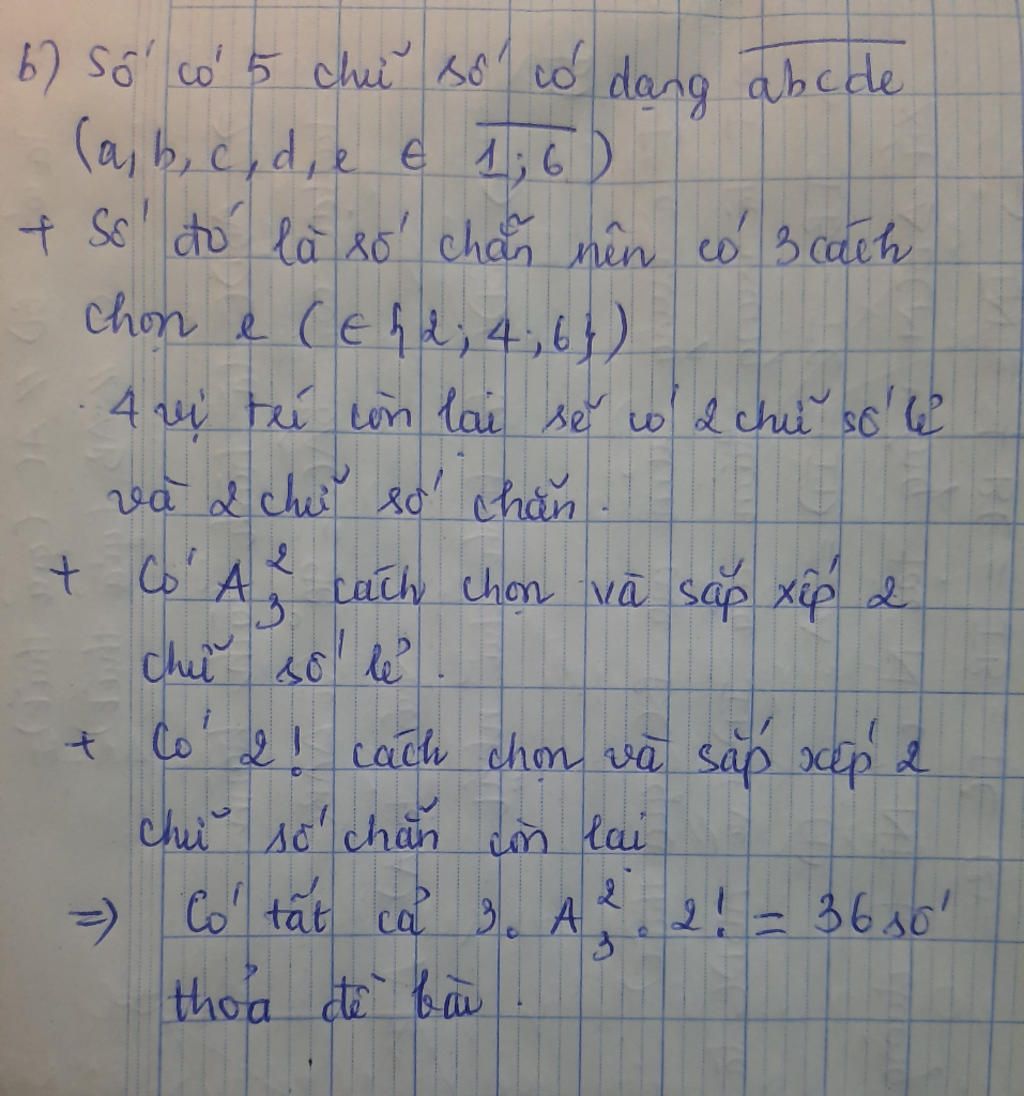 b) Số có 5 chữ số có dạng abcde
(a, b, c, d, e ∈ 1; 6)
+ Số đó là số chẵn nên có 3 cách
chọn e (∈ {2; 4; 6})
4 vị trí còn lại sẽ có 2 chữ số lẻ
và 2 chữ số chẵn.
+ Có A₃² cách chọn và sắp xếp 2
chữ số lẻ.
+ Có 2! cách chọn và sắp xếp 2
chữ số chẵn còn lại
=> Có tất cả 3. A₃². 2! = 36 số
thỏa đề bài.